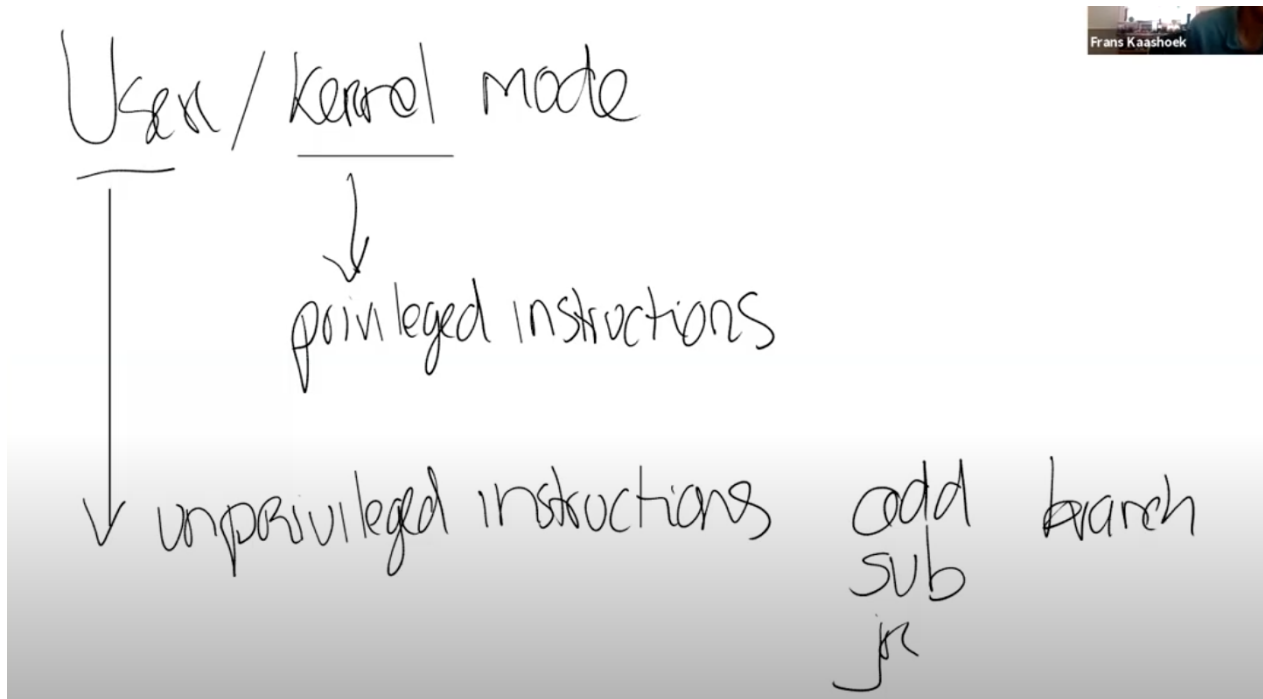 Frans Kaashoek
User/Kernel mode
privileged instructions
unprivileged instructions add branch
sub
jr